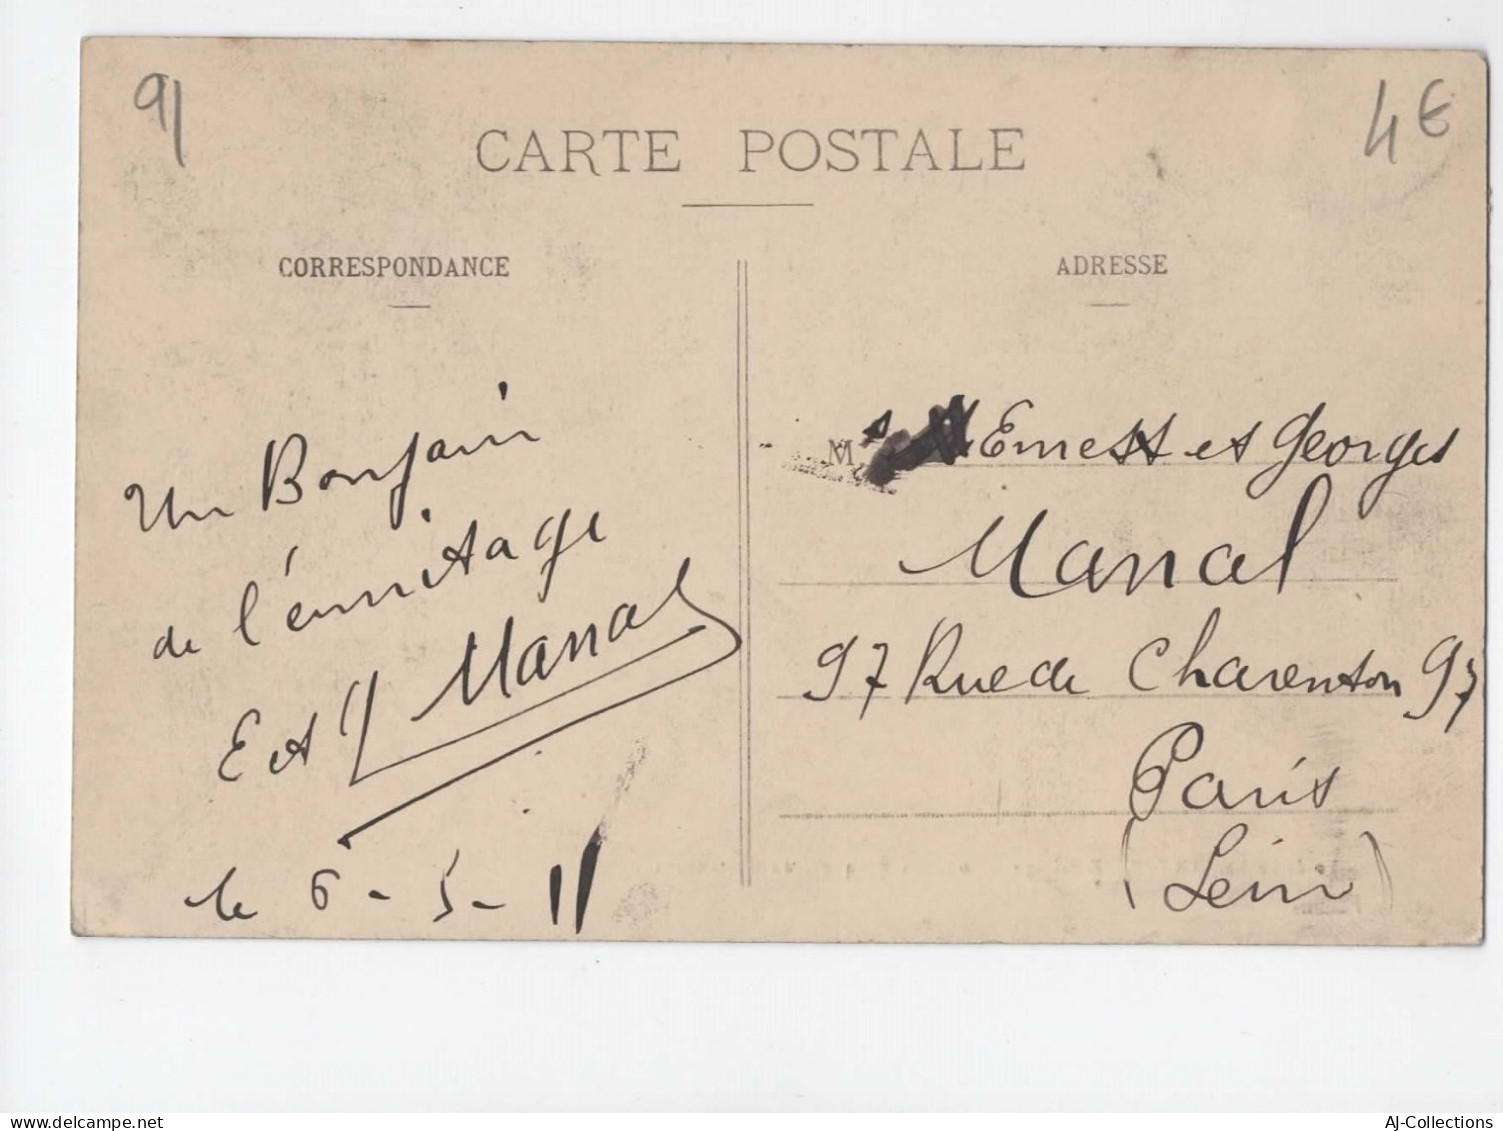 91
4€
CARTE POSTALE
CORRESPONDANCE
ADRESSE
Un Bonjour
de l'érmitage
E et G Manal
le 6-5-11
Ms Ernest et Georges
Manal
97 Rue de Charenton 97
Paris
(Sein)
AJ-Collections